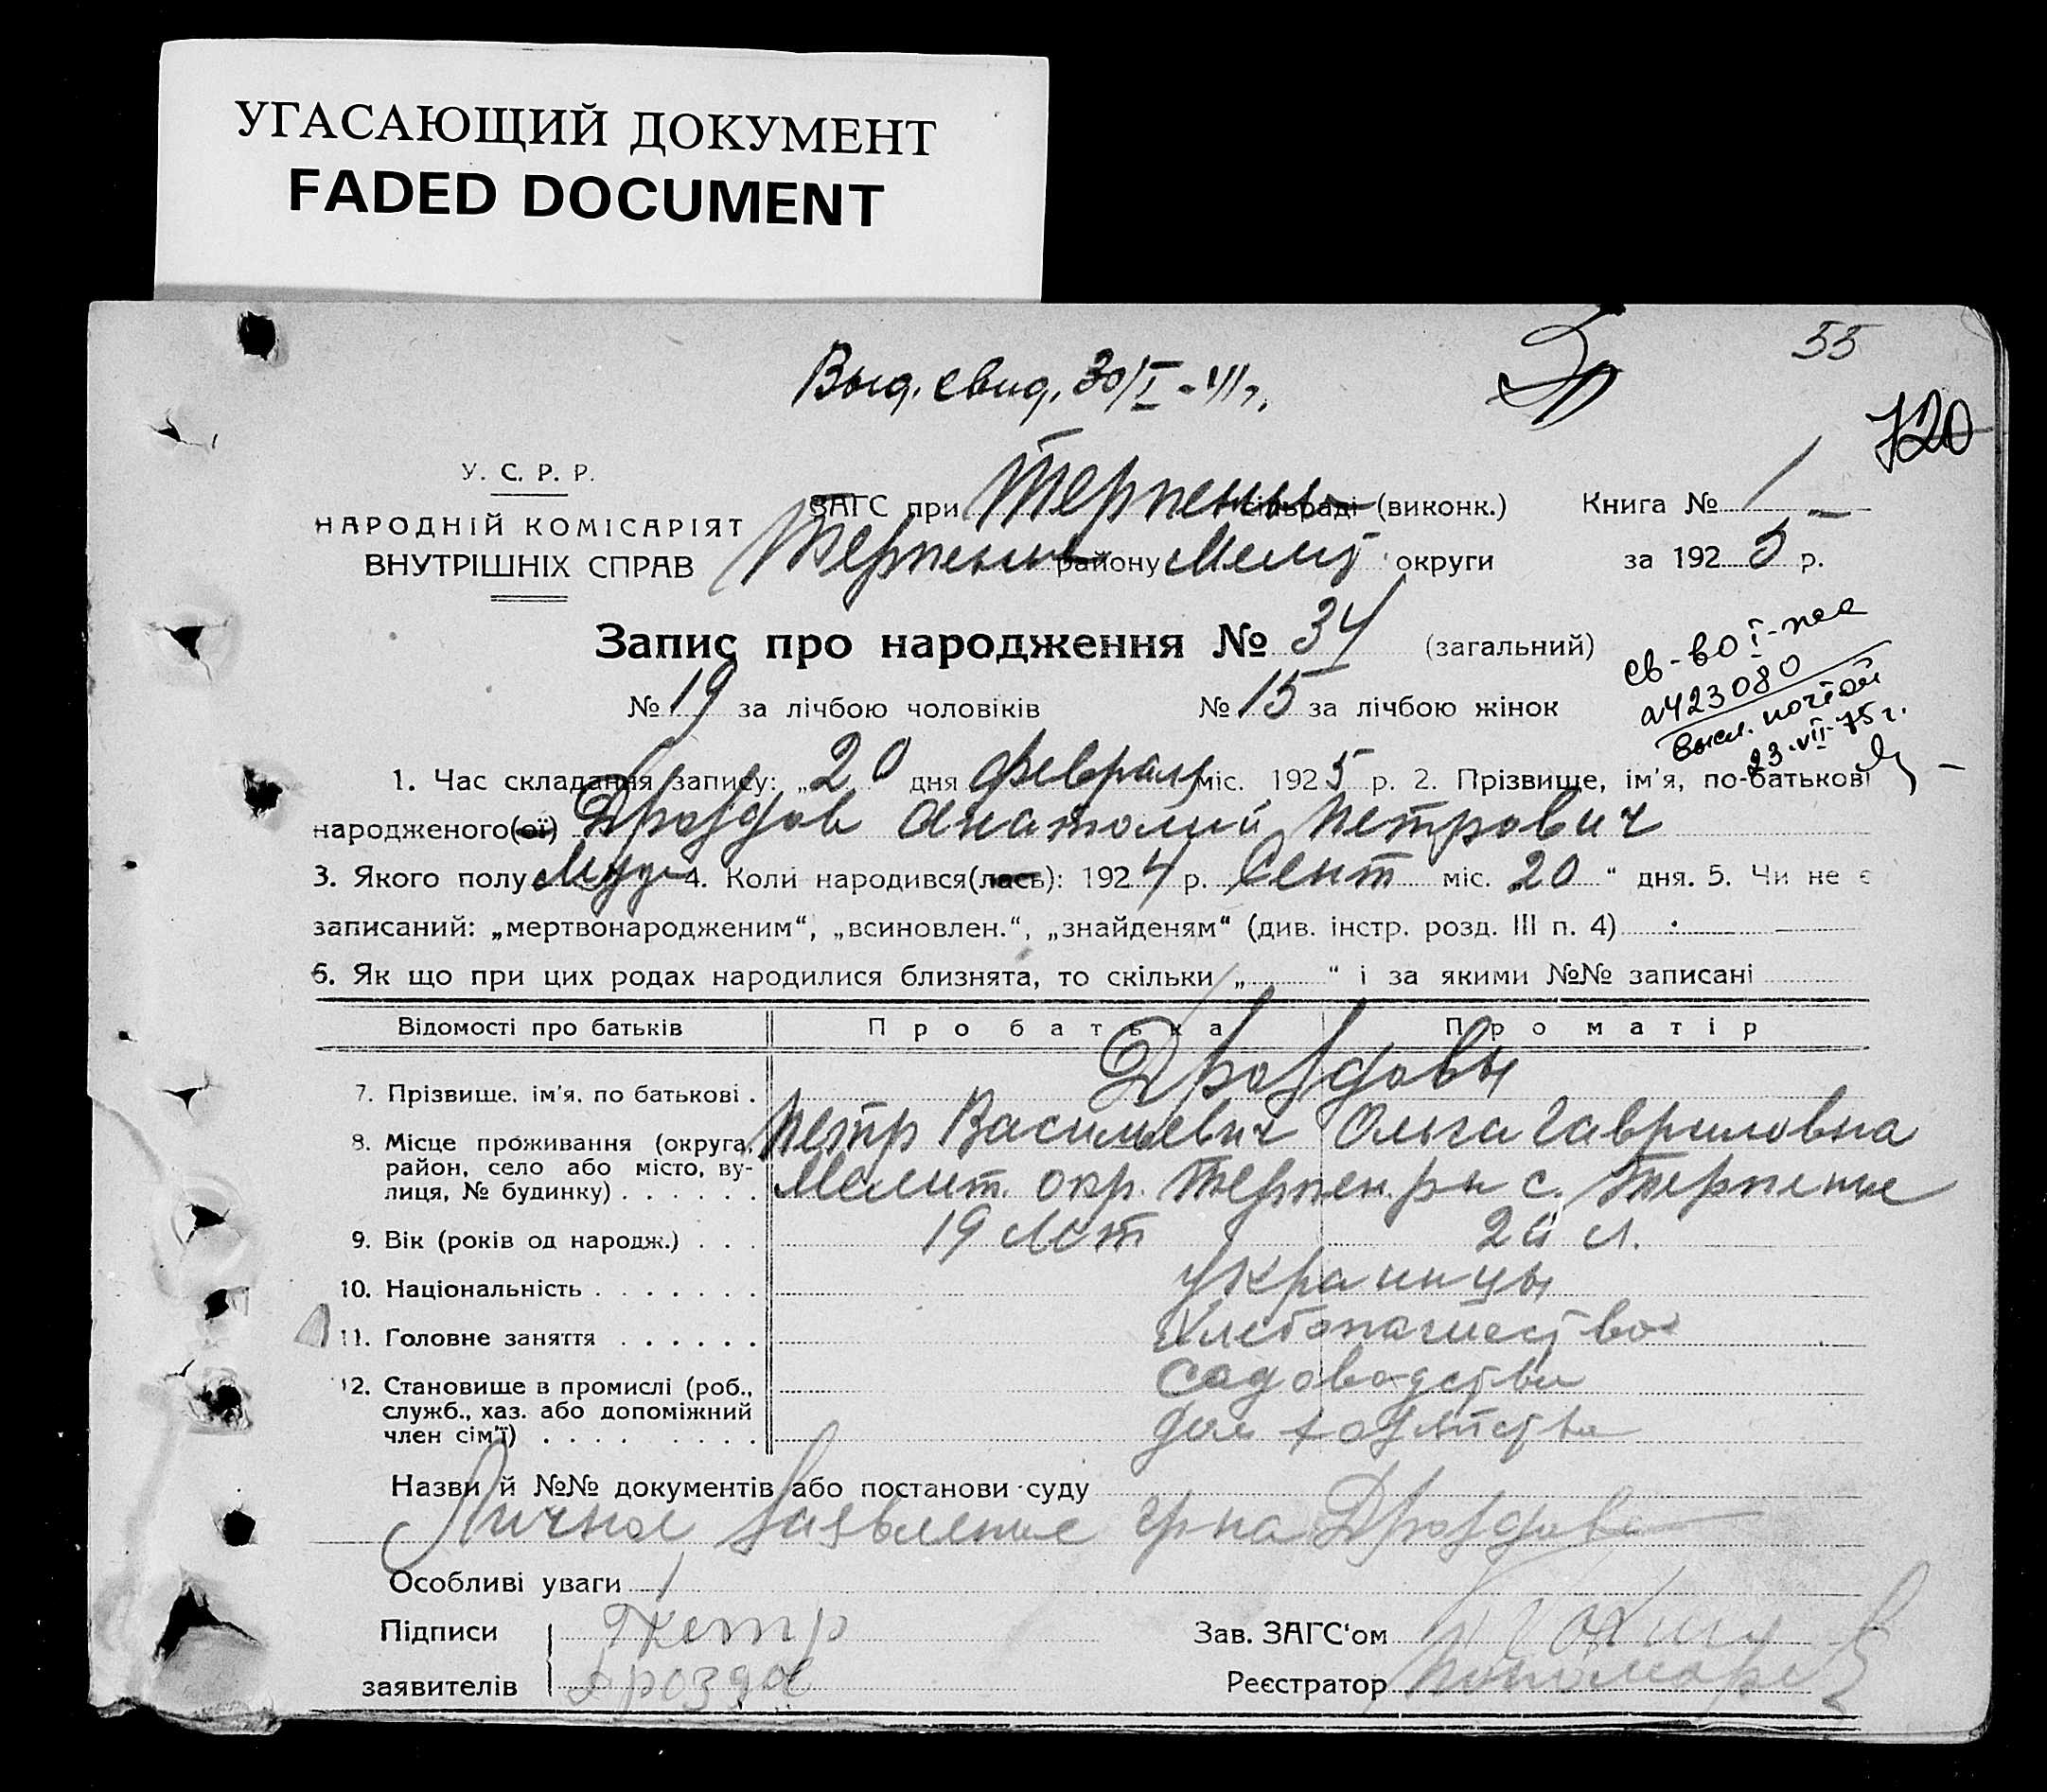 УГАСАЮЩИЙ ДОКУМЕНТ
FADED DOCUMENT
55
Выд. свид. 30/I-41г.
720
У. С. Р. Р.
НАРОДНІЙ КОМІСАРІЯТ
ВНУТРІШНІХ СПРАВ
ЗАГС при Терпень сільраді (виконк.) Книга № 1
Терпень району Мелит округи за 1925 р.
Запис про народження № 34 (загальний)
№ 19 за лічбою чоловіків № 15 за лічбою жінок
св-во I-
423080
высл. почтой
23-VII-75г.
1. Час складання запису: „20 дня февраль міс. 1925 р. 2. Прізвище, ім'я, по-батькові
народженого(ої) Дроздов Анатолий Петрович
3. Якого полу Муж 4. Коли народився(лась): 1924 р. Сент міс. 20 “ дня. 5. Чи не є
записаний: „мертвонародженим“, „всиновлен.“, „знайденям“ (див. інстр. розд. III п. 4)
6. Як що при цих родах народилися близнята, то скільки „ “ і за якими №№ записані
Відомості про батьків Про батька Про матір
Дроздовы
7. Прізвище, ім'я, по батькові .
Петр Васильевич Ольга Гавриловна
8. Місце проживання (округа,
район, село або місто, ву-
лиця, № будинку) . . . . . .
Мелит. окр. Терпен. рн с. Терпенье
9. Вік (років од народж.) . . . 19 лет 20 л.
10. Національність . . . . . . . украинцы
11. Головне заняття . . . . . . Хлебопашество
садоводство
12. Становище в промислі (роб.,
служб., хаз. або допоміжний
член сім'ї) . . . . . . . . .
дом хозяйство
Назви й №№ документів або постанови суду
Личное заявление гр на Дроздова
Особливі уваги
Підписи Петр Зав. ЗАГС'ом
заявителів Дрозда Реєстратор Пономарев